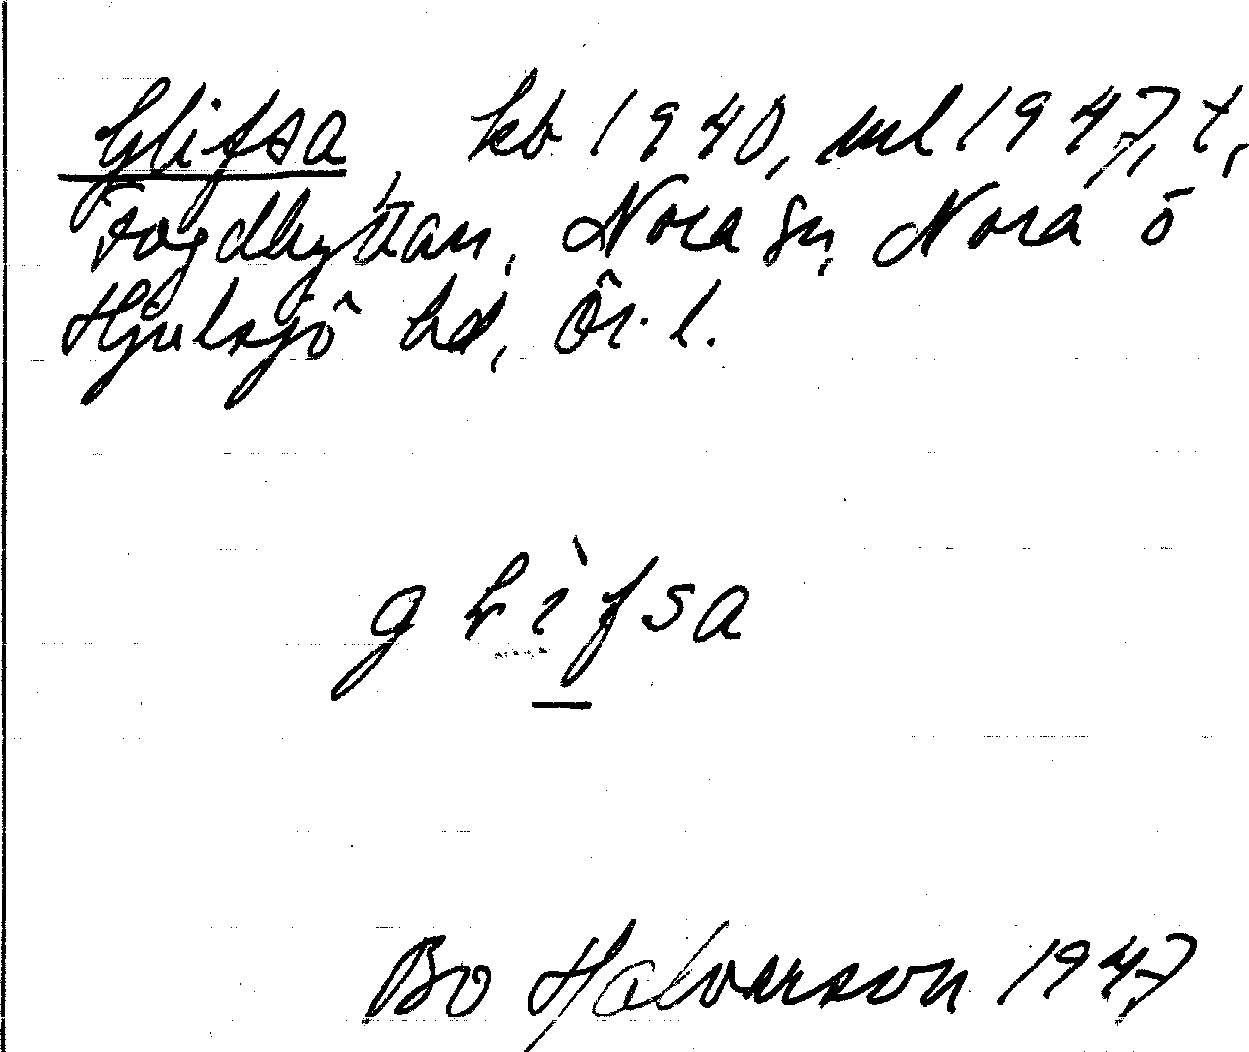 Glifsa, kb 1940, ml 1947, t,
Fogdhyttan, Nora sn, Nora o
Hjulsjö hd, Ör. l.
glìfsa
Bo Halvarson 1947